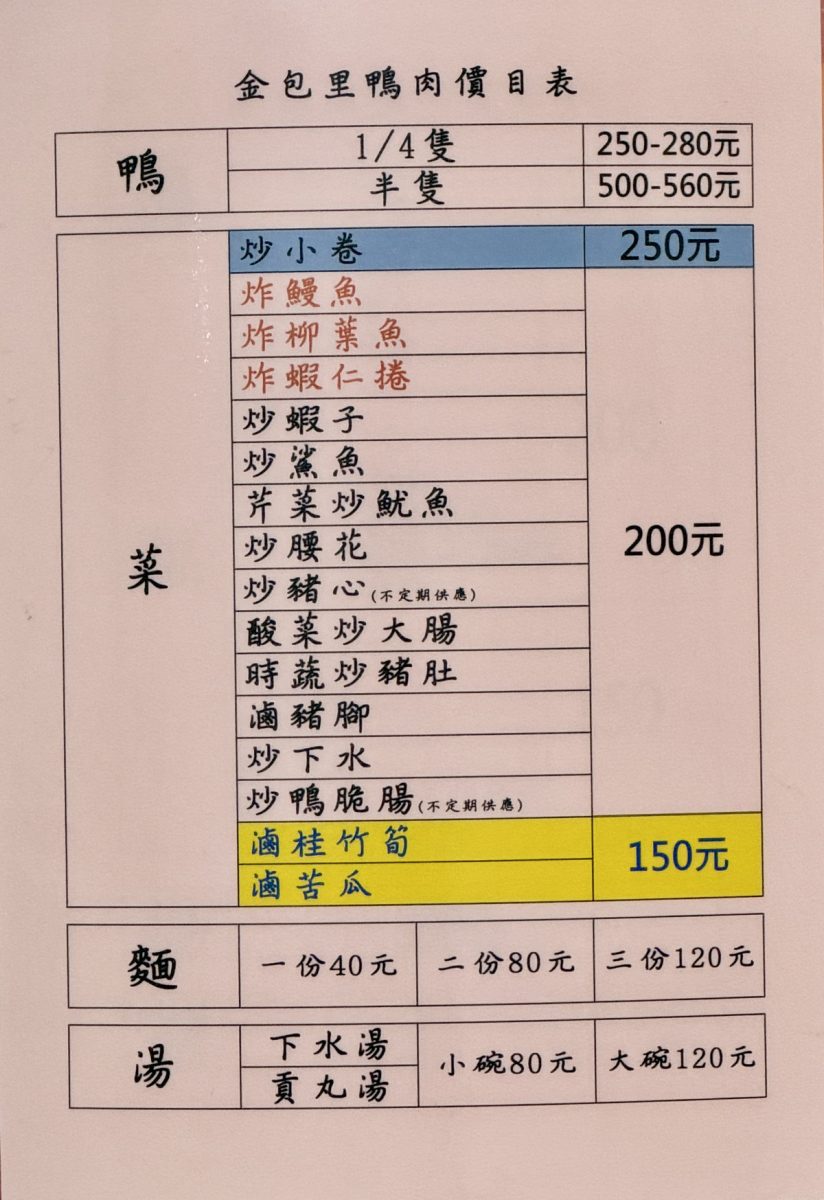 金包里鴨肉價目表
鴨
1/4隻 250-280元
半隻 500-560元
菜
炒小卷 250元
炸鰻魚
炸柳葉魚
炸蝦仁捲
炒蝦子
炒鯊魚
芹菜炒魷魚
炒腰花
200元
炒豬心(不定期供應)
酸菜炒大腸
時蔬炒豬肚
滷豬腳
炒下水
炒鴨脆腸(不定期供應)
滷桂竹筍
滷苦瓜
150元
麵 一份40元 二份80元 三份120元
湯
下水湯
貢丸湯
小碗80元 大碗120元